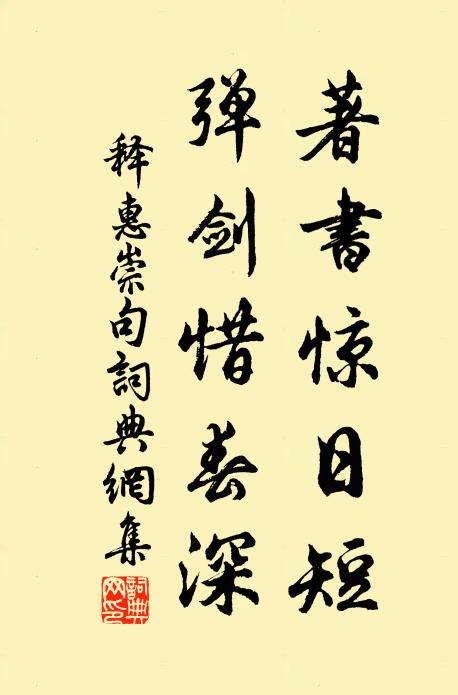 著書惊日短
弹剑惜春深
释惠崇句詞典網集
詞典网印